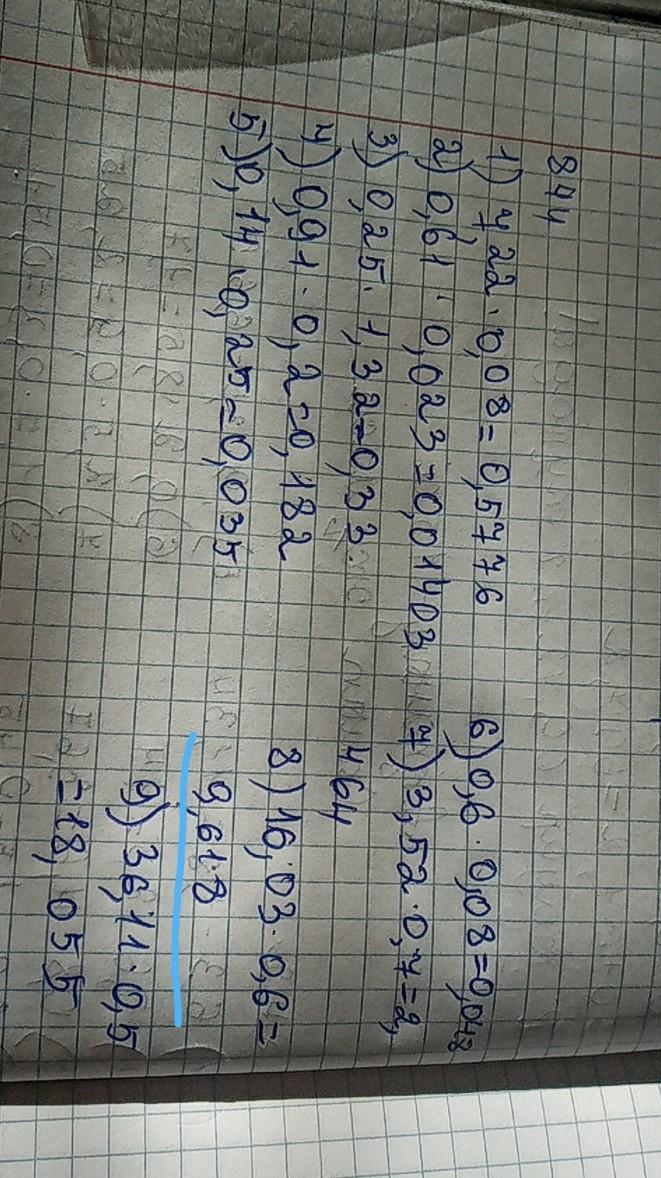 844
1) 7,22 · 0,08 = 0,5776
2) 0,61 · 0,023 = 0,01403
3) 0,25 · 1,32 = 0,33
4) 0,91 · 0,2 = 0,182
5) 0,14 · 0,25 = 0,035
6) 0,6 · 0,08 = 0,048
7) 3,52 · 0,7 = 2,
464
8) 16,03 · 0,6 =
9,618
9) 36,11 · 0,5
= 18,055